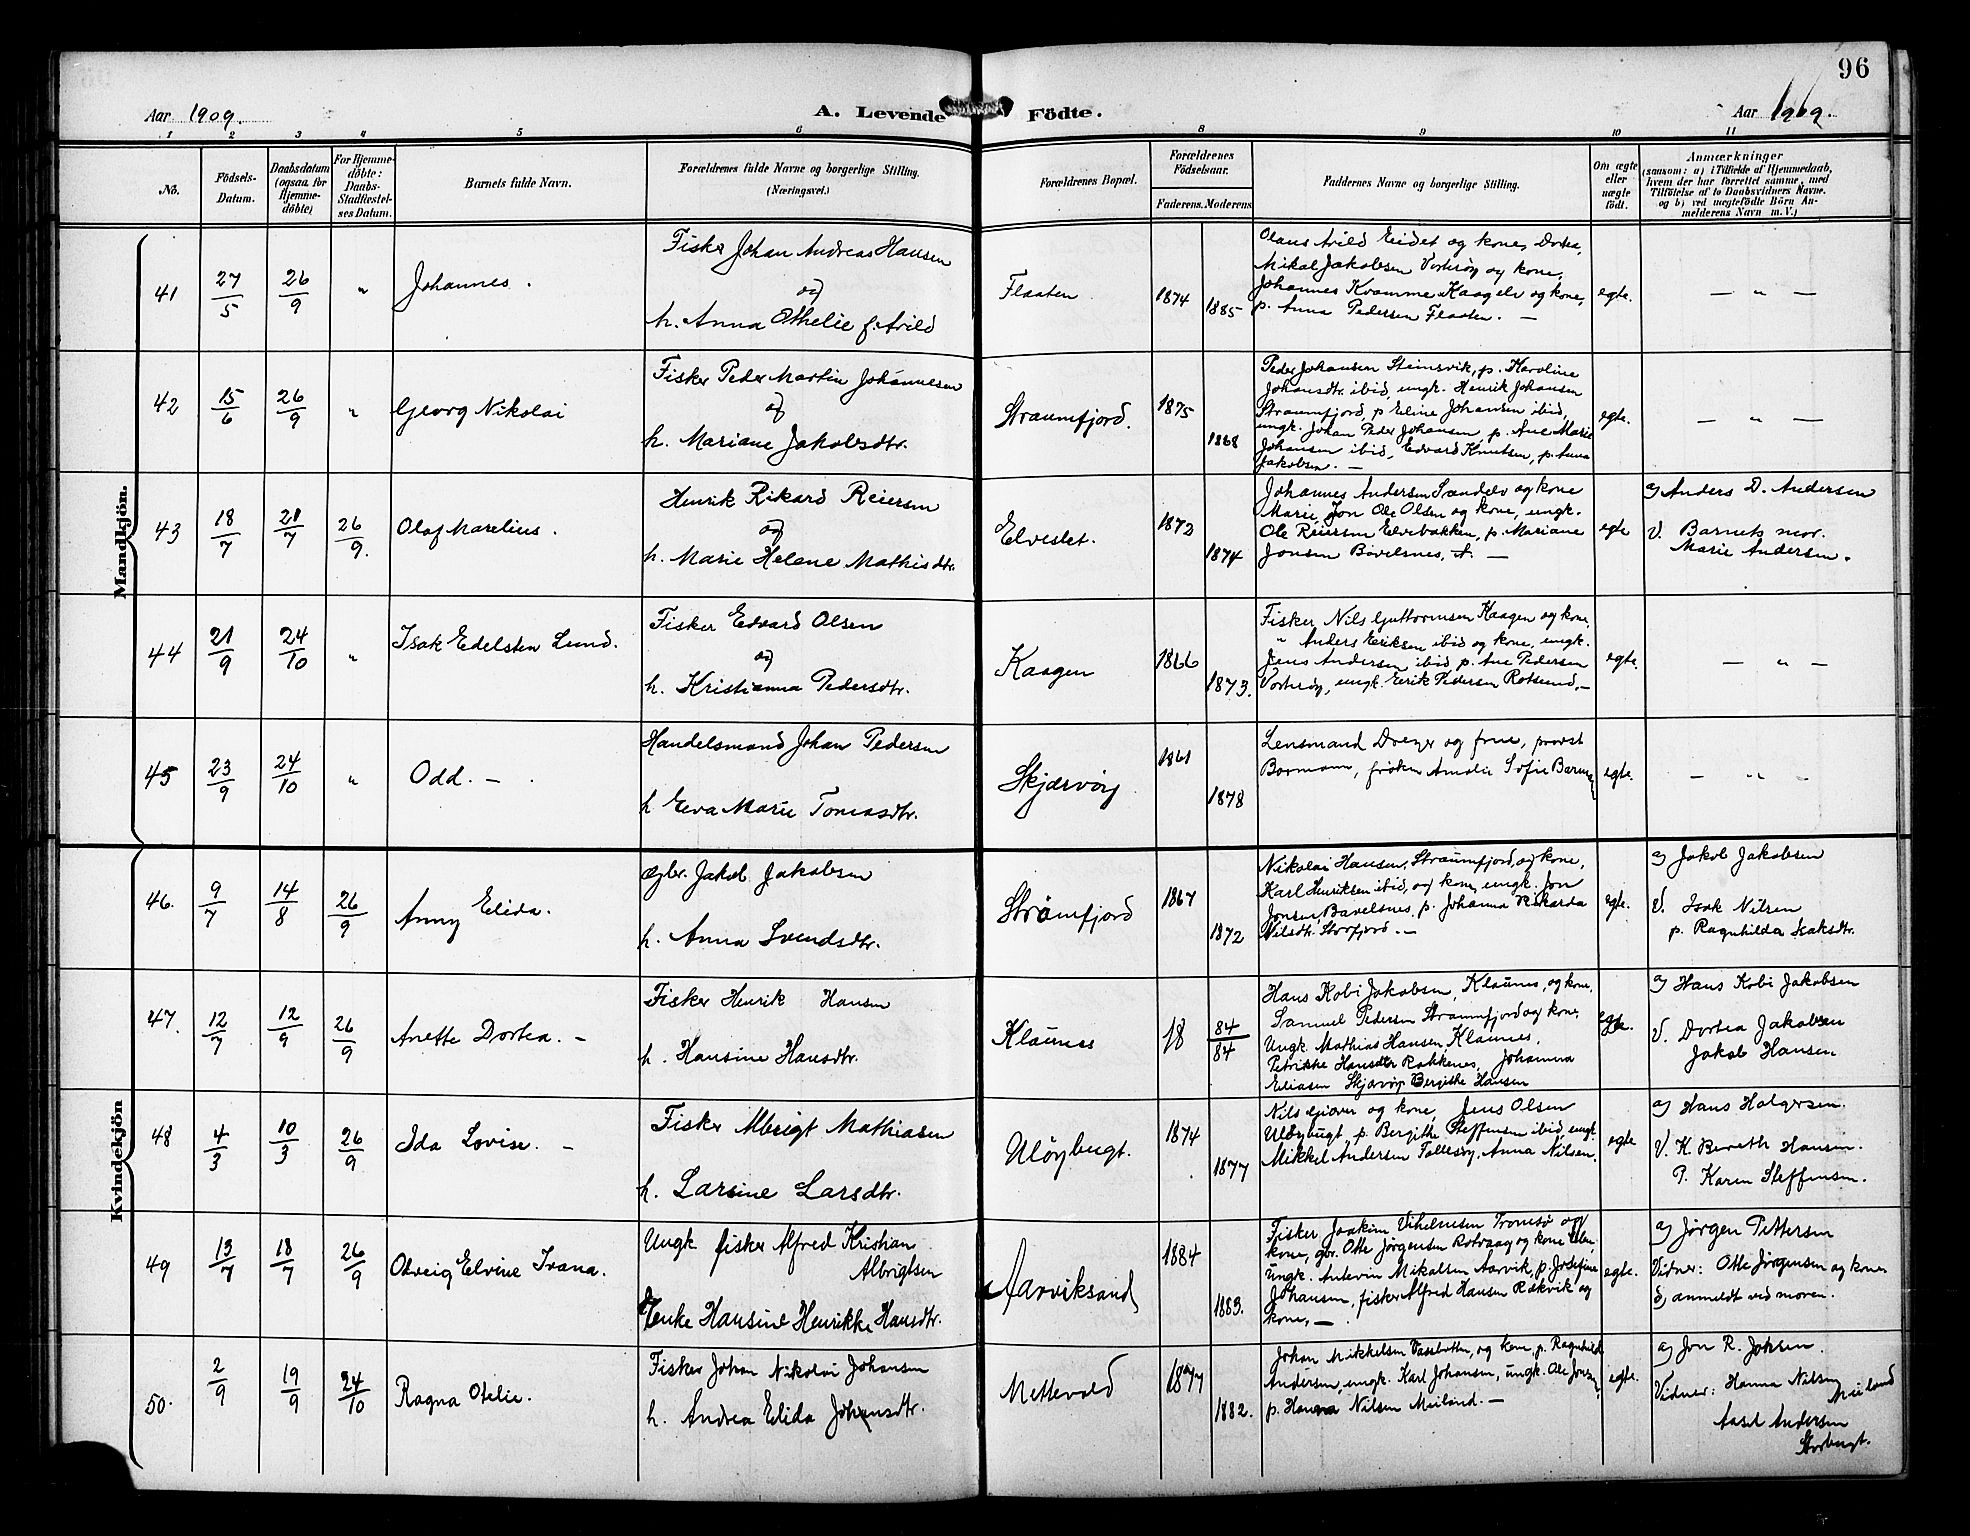 96
Aar 1909.
A. Levende Födte.
Aar 1909.
1 2 3 4 5 6 8 9 10 11
No.
Födsels-Datum.
Daabsdatum (ogsaa for Hjemmedöbte)
For Hjemmedöbte: Daabs-Stadfæstelses Datum.
Barnets fulde Navn.
Forældrenes fulde Navne og borgerlige Stilling.
(Næringsvei.)
Forældrenes Bopæl.
Forældrenes Födselsaar.
Faderens. Moderens
Faddernes Navne og borgerlige Stilling.
Om ægte eller uægte födt.
Anmærkninger
(saasom: a) i Tilfælde af Hjemmedaab,
hvem der har forrettet samme, med
Tilföielse af to Daabsvidners Navne.
og b) ved uægtefödte Börn An-
melderens Navn m. V.)
Mandkjön.
41 27/5 26/9 " Johannes.
Fisker Johan Andreas Hansen
og
h. Anna Othelie f. Arild
Flaaten 1874 1885
Olaus Arild Eidet og kone, Dortea,
Mikal Jakobsen Vorterøy og kone,
Johannes Kvamme Kaagelv og kone,
p. Anna Pedersen Flaaten. —
egte. — " —
42 15/6 26/9 " Georg Nikolai
Fisker Peder Martin Johannesen
og
h. Mariane Jakobsdtr.
Straumfjord. 1875 1868
Peder Johansen Steinsvik, p. Karoline
Johansdtr. ibid, ungk. Henrik Johansen
Straumfjord, p Eline Johansen ibid,
ungk. Johan Peder Johansen, p. Ane Marie
Johansen ibid, Edvard Knutsen, p. Anna
Jakobsen. —
egte. — " —
43 18/7 21/7 26/9. Olaf Marelius.
Henrik Rikard Reiersen
og
h. Marie Helene Mathisdtr.
Elveslet. 1873 1874
Johannes Andersen Sandelv og kone
Marie, Jon Ole Olsen og kone, ungk.
Ole Reiersen Elvebakken, p. Mariane
Jonsen Bavelsnes, —
egte
a) Anders D. Andersen
V. Barnets mor.
Marie Andersen.
44 21/9 24/10 " Isak Edelsten Lund.
Fisker Edvard Olsen
og
h. Kristianna Pedersdtr.
Kaagen 1866 1873.
Fisker Nils Guttormsen Kaagen og kone,
" Anders Eriksen ibid og kone, ungk.
Jens Andersen ibid p. Ane Pedersen
Vorterøy, ungk. Eerik Pedersen Rotsund, —
egte. — " —
45 23/9 24/10 " Odd. —
Handelsmand Johan Pedersen
h Eva Marie Tomasdtr.
Skjærvøy 1861 1878
Lensmand Dreyer og frue, provst
Bormann, frøken Amalie Sofie
egte. — " —
Kvindekjön
46. 9/7 14/8 26/9 Anny Elida.
Gbr. Jakob Jakobsen
h. Anna Svendsdtr.
Strømfjord 1867 1872
Nikolai Hansen, Straumfjord, og kone,
Karl Henriksen ibid, og kone, ungk. Jon
Jonsen, Bavelsnes, p. Johanna Rikarda
Nilsdtr. Storfjord. —
egte.
a) Jakob Jakobsen
V. Isak Nilsen
p. Ragnhilda Isaksdtr.
47. 12/7 12/9 26/9 Anette Dortea. —
Fisker Henrik Hansen
h. Hansine Hansdtr.
Klaunes 18 84/84
Hans Kobi Jakobsen, Klaunes, og kone,
Samuel Pedersen Straumfjord og kone,
Ungk. Mathias Hansen Klaunes,
Petrikke Hansdtr Rakkenes, Johanna
Eliasen Skjærvøy Bergithe Hansen
egte.
a) Hans Kobi Jakobsen
V. Dortea Jakobsen
Jakob Hansen
48 4/3 10/3 26/9 Ida Lovise. —
Fisker Albrigt Mathiasen
h. Larsine Larsdtr.
Uløybugt. 1874 1877
Nils Giæver og kone, Jens Olsen
Uløybugt, p. Bergithe Steffensen ibid, ungk.
Mikkel Andersen Follesøy, Anna Nilsen.
egte
a) Hans Holgersen.
V. K. Bereth Hansen.
P. Karen Steffensen.
49 13/7 18/7 26/9 Olveig Elvine Ivana.
Ungk fisker Alfred Kristian
Albrigtsen
Enke Hansine Henrikke Hansdtr.
Aarviksand 1884 1883.
Fisker Joakim Vilhelmsen Tromsø og
kone, gbr. Otte Jørgensen Rotvaag og kone,
ungk. Antevin Mikalsen Aarvik, p. Josefine
Johansen, fisker Alfred Hansen Rakvik og
kone, —.
egte.
a) Jørgen Pettersen
Vidner: Otte Jørgensen og kone
b) anmeldt ved moren.
50. 2/9 19/9 24/10 Ragna Otelie.
Fisker Johan Nikolai Johansen
h. Andrea Elida Johansdtr.
Mettevold 1877 1882.
Johan Mikkelsen Vassbotten, og kone, p. Ragnhild
Andersen, ungk. Karl Johansen, ungk. Ole Jonsen,
p. Hanna Nilsen Meiland. —
egte.
a) Jon R. Johsen.
Vidner: Hanna Nilsen Meiland
Aasel Andersen
Storbugt.